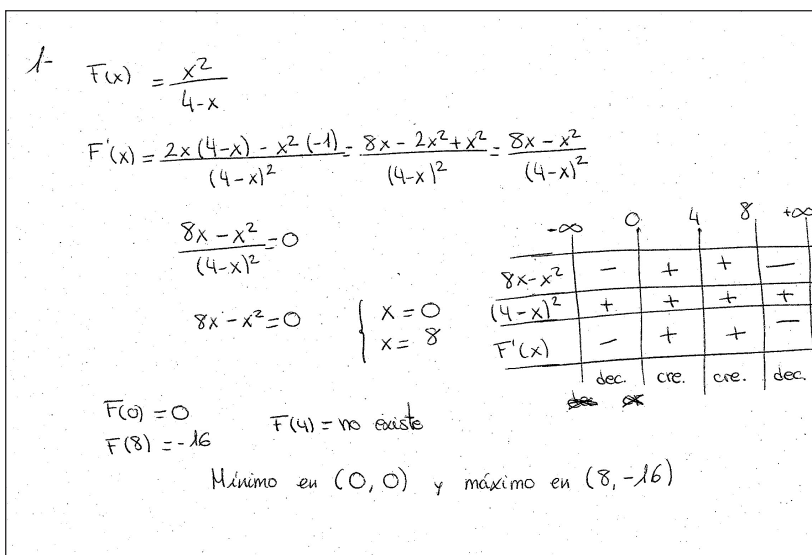 1- F(x) = x²/(4-x)
F'(x) = (2x(4-x) - x²(-1))/(4-x)² = (8x - 2x² + x²)/(4-x)² = (8x - x²)/(4-x)²
(8x - x²)/(4-x)² = 0
8x - x² = 0 { x = 0
x = 8
-∞ 0 4 8 +∞
8x-x² - + + -
(4-x)² + + + +
F'(x) - + + -
dec. cre. cre. dec.
F(0) = 0
F(8) = -16
F(4) = no existe
Mínimo en (0,0) y máximo en (8,-16)